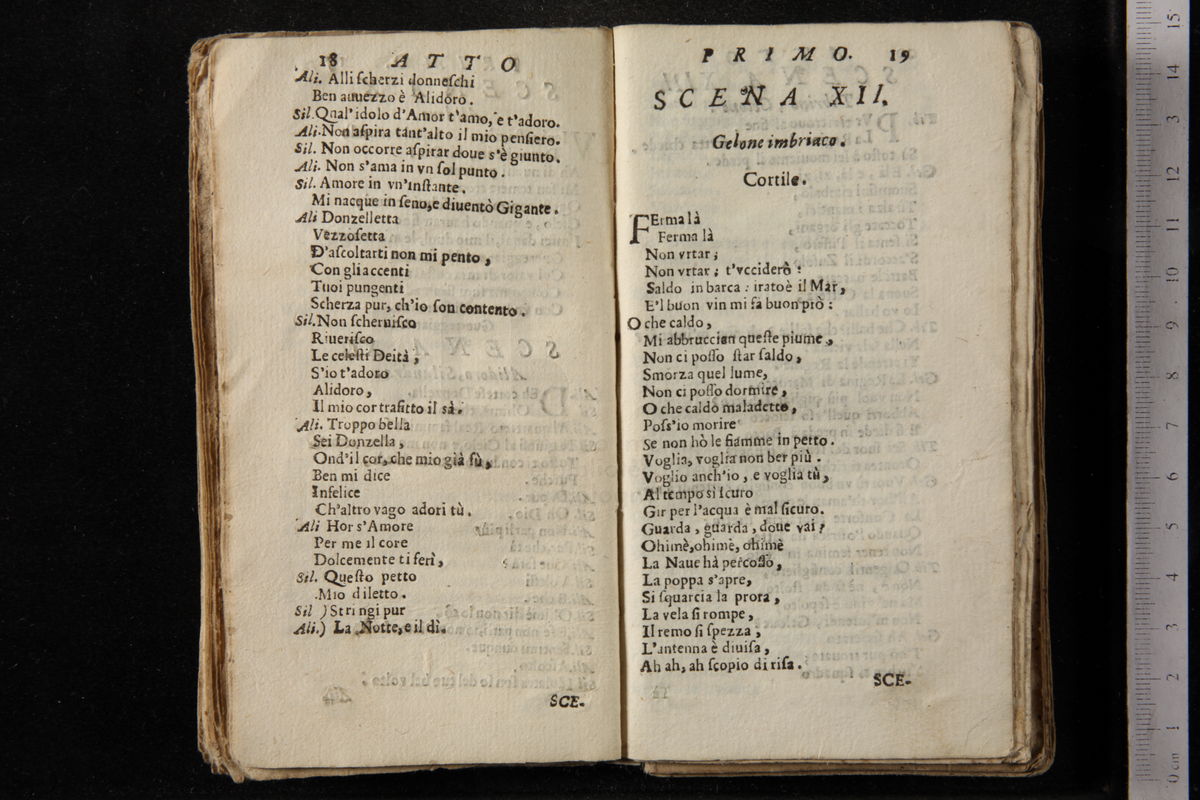 18 ATTO
Ali. Alli ſcherzi donneſchi
Ben auuezzo è Alidoro.
Sil. Qual'idolo d'Amor t'amo, e t'adoro.
Ali. Non aſpira tant'alto il mio penſiero.
Sil. Non occorre aſpirar doue s'è giunto.
Ali. Non s'ama in vn ſol punto.
Sil. Amore in vn'inſtante.
Mi nacque in ſeno, e diuentò Gigante.
Ali Donzelletta
Vezzoſetta
D'aſcoltarti non mi pento,
Con gli accenti
Tuoi pungenti
Scherza pur, ch'io ſon contento.
Sil. Non scherniſco
Riueriſco
Le celeſti Deità,
S'io t'adoro
Alidoro,
Il mio cor trafitto il sà.
Ali. Troppo bella
Sei Donzella,
Ond'il cor, che mio già fù,
Ben mi dice
Infelice
Ch'altro vago adori tù.
Ali Hor s'Amore
Per me il core
Dolcemente ti ferì,
Sil. Queſto petto
Mio diletto.
Sil ) Stringi pur
Ali.) La Notte, e il dì.
SCE-
PRIMO. 19
SCENA XII.
Gelone imbriaco.
Cortile.
FErma là
Ferma là
Non vrtar;
Non vrtar; t'vcciderò:
Saldo in barca: irato è il Mar,
E'l buon vin mi fà buon prò:
O che caldo,
Mi abbruccian queſte piume,
Non ci poſſo ſtar ſaldo,
Smorza quel lume,
Non ci poſſo dormire,
O che caldo maladetto,
Poſs'io morire
Se non hò le fiamme in petto.
Voglia, voglia non ber più.
Voglio anch'io, e voglia tù,
Al tempo sì ſcuro
Gir per l'acqua è mal ſicuro.
Guarda, guarda, doue vai?
Ohimè, ohimè, ohimè
La Naue hà percoſſo,
La poppa s'apre,
Si ſquarcia la prora,
La vela ſi rompe,
Il remo ſi ſpezza,
L'antenna è diuiſa,
Ah ah, ah ſcopio di riſa.
SCE-
15
14
13
12
11
10
9
8
7
6
5
4
3
2
1
0 cm